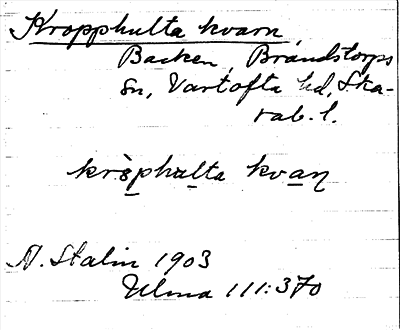 Kropphulta kvarn,
Backen, Brandstorps
sn, Vartofta hd, Ska-
rab. l.
kvarn
A. Stalin 1903
Ulma 111:370